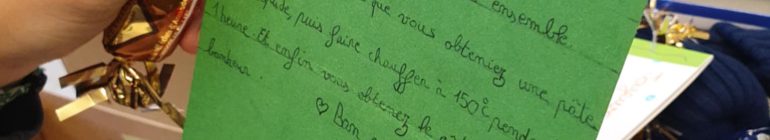 ensemble
que vous obteniez une pâte
puis faire chauffer à 150°C pend
1 heure. Et enfin vous obtenez le
bonheur.
♡ Bon